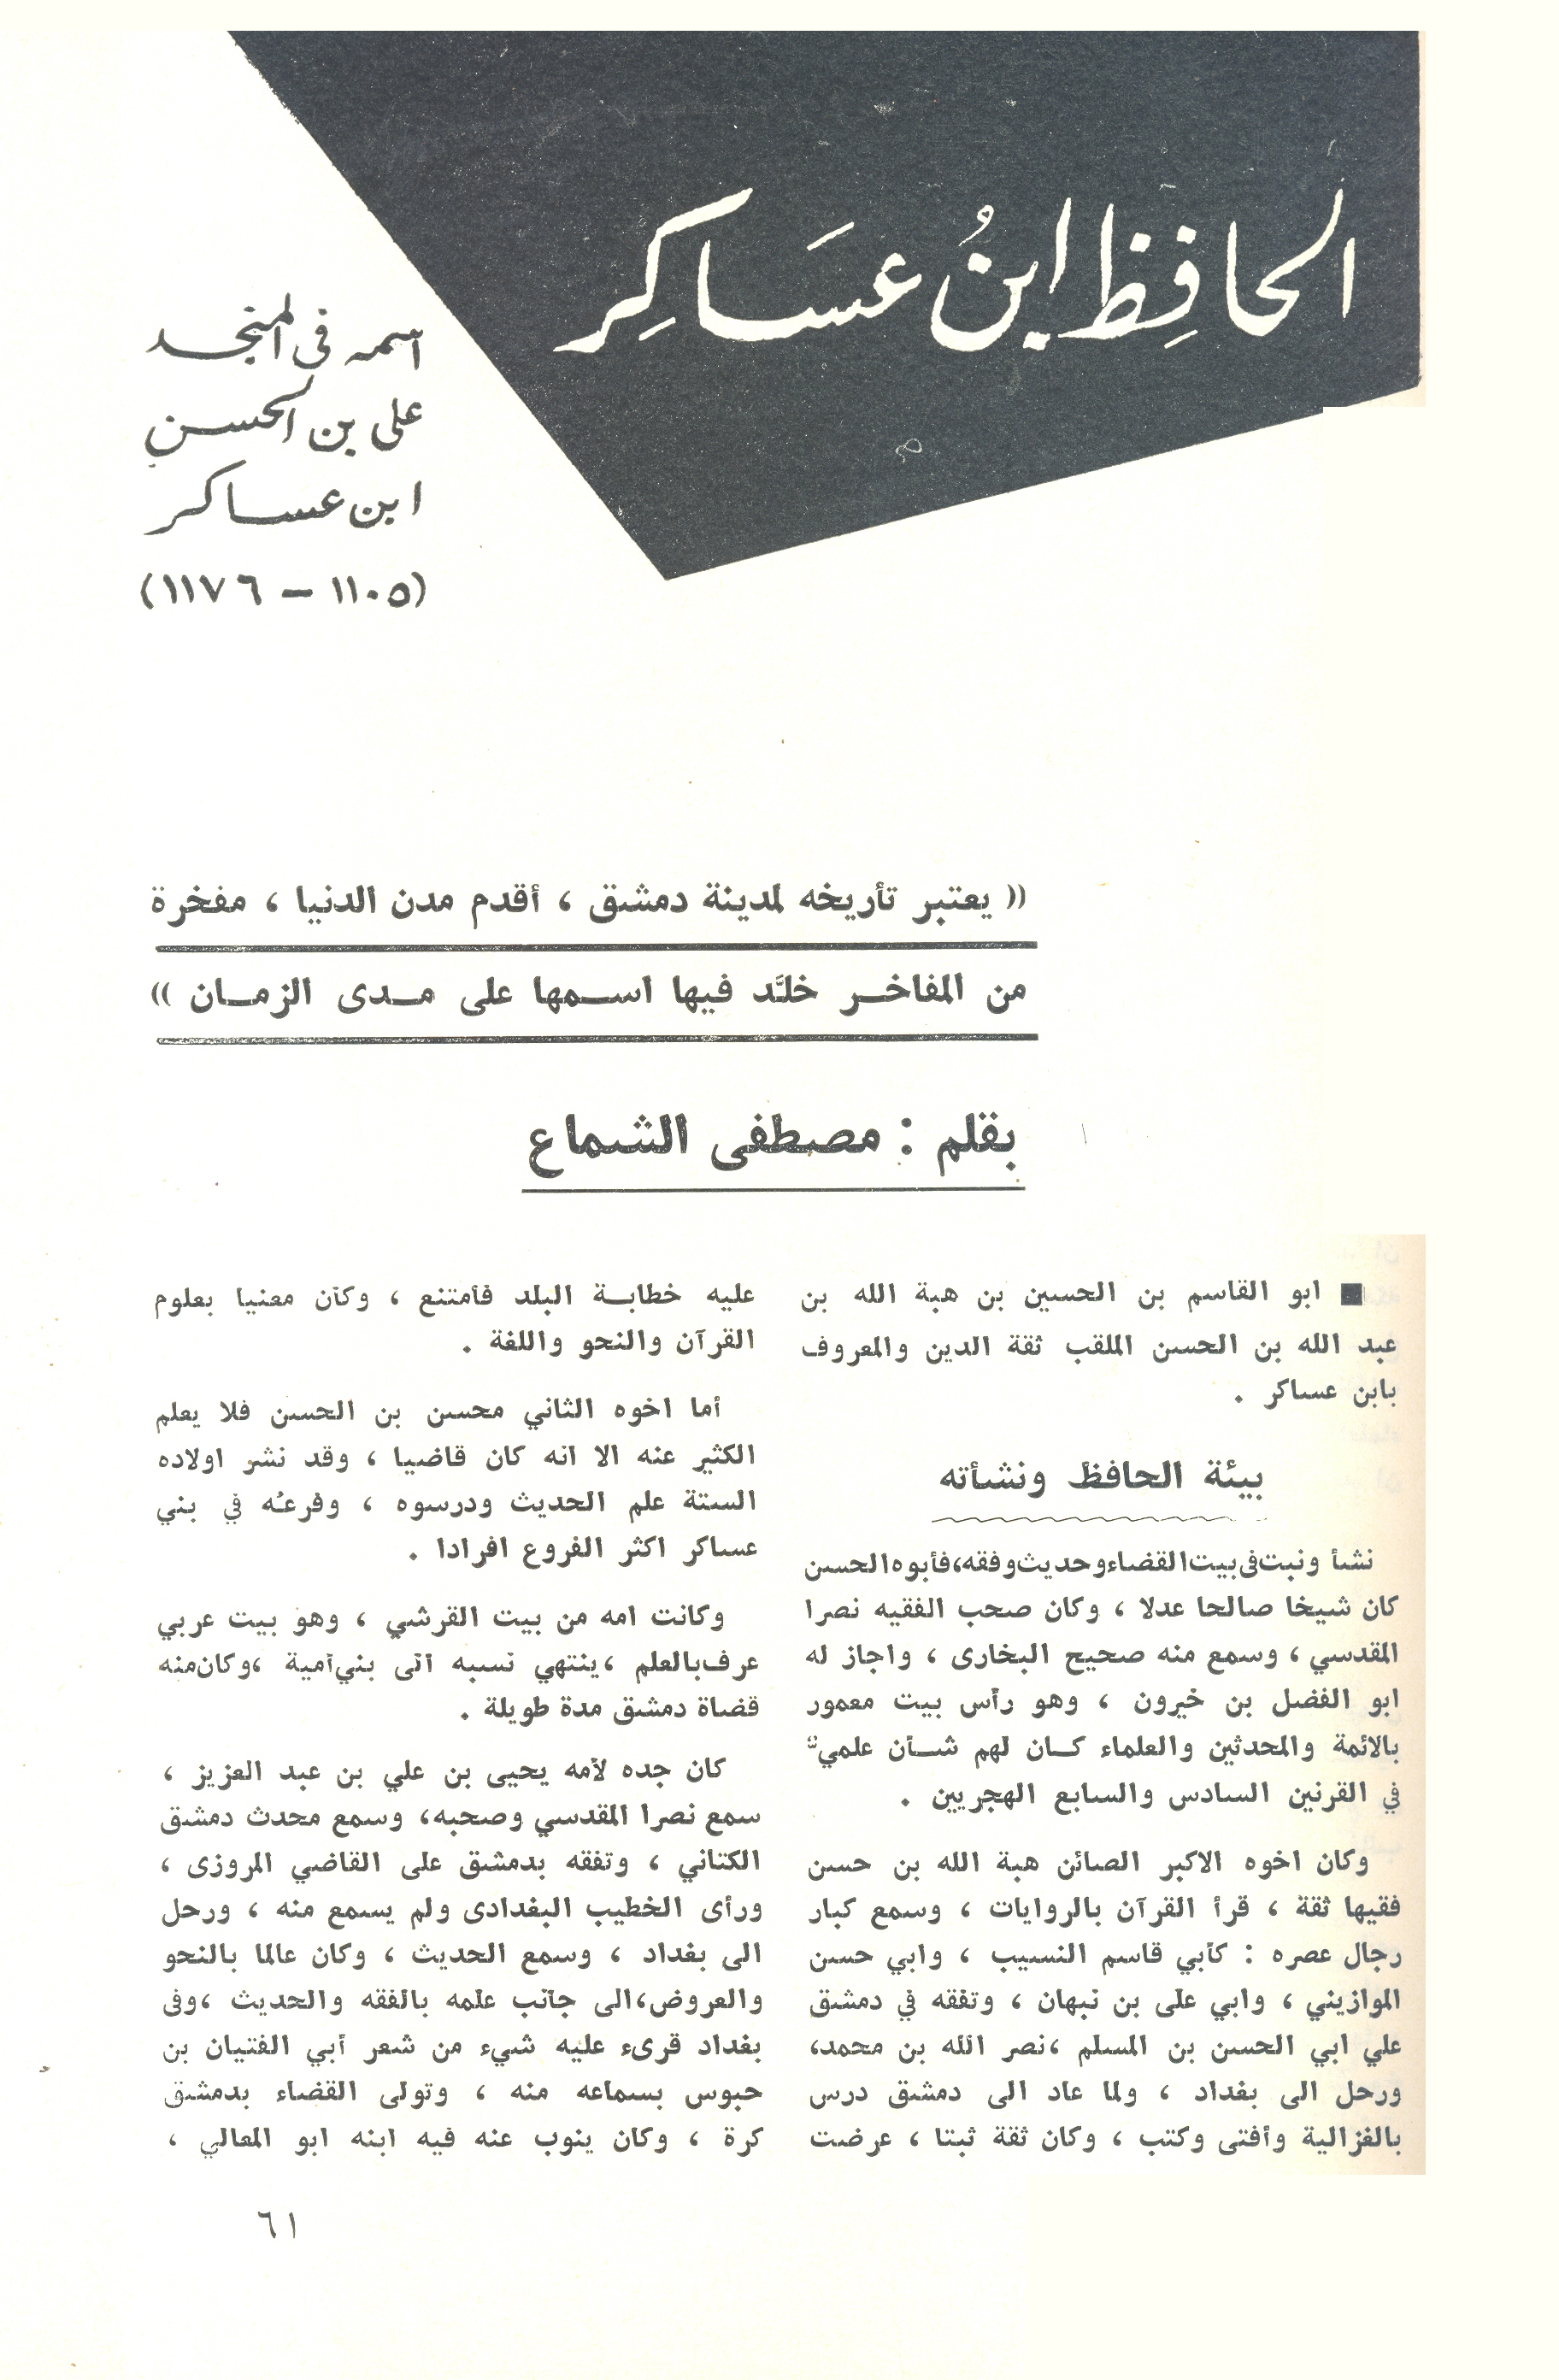 الحافِظ ابنُ عسَاكِر
اسمه في المنجد
علي بن الحسن
ابن عساكر
(١١٠٥ – ١١٧٦)
(( يعتبر تأريخه لمدينة دمشق ، أقدم مدن الدنيا ، مفخرة
من المفاخر خلَّد فيها اسمها على مدى الزمان ))
بقلم : مصطفى الشماع
■ ابو القاسم بن الحسين بن هبة الله بن
عبد الله بن الحسن الملقب ثقة الدين والمعروف
بابن عساكر .
بيئة الحافظ ونشأته
نشأ ونبت فى بيت القضاء وحديث وفقه، فأبوه الحسن
كان شيخا صالحا عدلا ، وكان صحب الفقيه نصرا
المقدسي ، وسمع منه صحيح البخارى ، واجاز له
ابو الفضل بن خيرون ، وهو رأس بيت معمور
بالائمة والمحدثين والعلماء كان لهم شأن علمي
في القرنين السادس والسابع الهجريين .
وكان اخوه الاكبر الصائن هبة الله بن حسن
فقيها ثقة ، قرأ القرآن بالروايات ، وسمع كبار
رجال عصره : كأبي قاسم النسيب ، وابي حسن
الموازيني ، وابي على بن نبهان ، وتفقه في دمشق
علي ابي الحسن بن المسلم ،نصر الله بن محمد،
ورحل الى بغداد ، ولما عاد الى دمشق درس
بالغزالية وأفتى وكتب ، وكان ثقة ثبتا ، عرضت
عليه خطابة البلد فأمتنع ، وكان معنيا بعلوم
القرآن والنحو واللغة .
أما اخوه الثاني محسن بن الحسن فلا يعلم
الكثير عنه الا انه كان قاضيا ، وقد نشر اولاده
الستة علم الحديث ودرسوه ، وفرعُه في بني
عساكر اكثر الفروع افرادا .
وكانت امه من بيت القرشي ، وهو بيت عربي
عرف بالعلم ،ينتهي نسبه الى بني أمية ،وكان منه
قضاة دمشق مدة طويلة .
كان جده لأمه يحيى بن علي بن عبد العزيز ،
سمع نصرا المقدسي وصحبه، وسمع محدث دمشق
الكتاني ، وتفقه بدمشق على القاضي المروزى ،
ورأى الخطيب البغدادى ولم يسمع منه ، ورحل
الى بغداد ، وسمع الحديث ، وكان عالما بالنحو
والعروض،الى جانب علمه بالفقه والحديث ،وفى
بغداد قرىء عليه شيء من شعر أبي الفتيان بن
حبوس بسماعه منه ، وتولى القضاء بدمشق
كرة ، وكان ينوب عنه فيه ابنه ابو المعالي ،
٦١